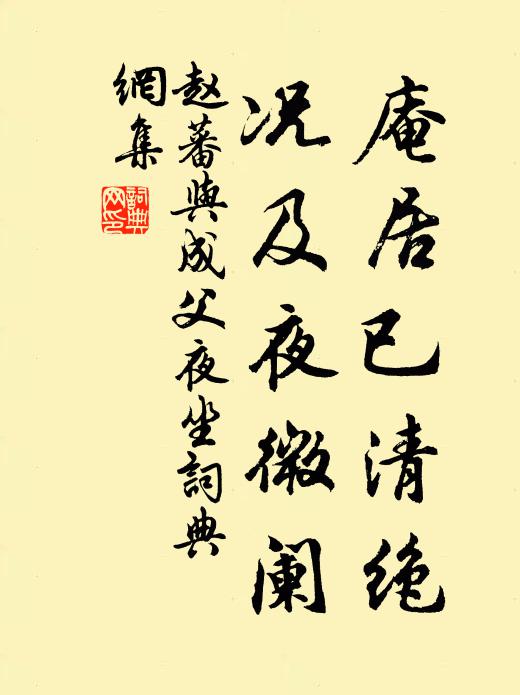 庵居已清绝
况及夜微阑
赵蕃与成父夜坐词典
网集
词典
网印